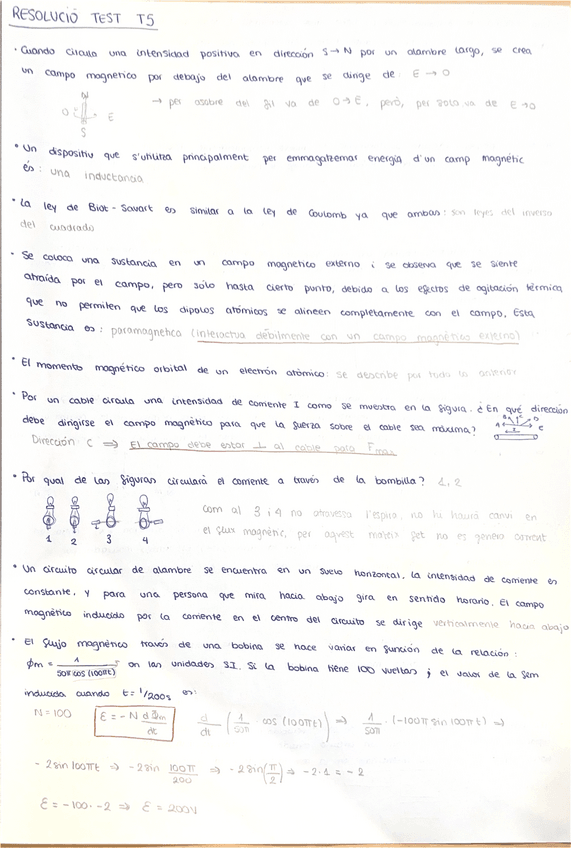 RESOLUCIÓ TEST T5
· Cuando circula una intensidad positiva en dirección S→N por un alambre largo, se crea
un campo magnético por debajo del alambre que se dirige de: E → O
N
O E
S
→ per asobre del fil va de O→E, però, per sota va de E→O
· Un dispositiu que s'utilitza principalment per emmagatzemar energía d'un camp magnétic
és: una inductancia
· La ley de Biot-Savart es similar a la ley de Coulomb ya que ambas: son leyes del inverso
del cuadrado
· Se coloca una sustancia en un campo magnetico externo i se observa que se siente
atraída por el campo, pero solo hasta cierto punto, debido a los efectos de agitación térmica
que no permiten que los dipolos atómicos se alineen completamente con el campo. Esta
sustancia es: paramagnetica (interactua débilmente con un campo magnético externo)
· El momento magnético orbital de un electrón atómico: se describe por todo lo anterior
· Por un cable circula una intensidad de corriente I como se muestra en la figura. ¿En qué dirección
debe dirigirse el campo magnético para que la fuerza sobre el cable sea máxima?
A B C D E
I
Dirección C ⟹ El campo debe estar ⊥ al cable para Fmax
· Por qual de las figuras circulará el corriente a través de la bombilla? 1, 2
1 2 3 4
Com al 3 i 4 no atravessa l'espira, no hi haurá canvi en
el flux magnétic, per aquest mateix fet no es genera corrent
· Un circuito circular de alambre se encuentra en un suelo horizontal. La intensidad de corriente es
constante, y para una persona que mira hacia abajo gira en sentido horario. El campo
magnético inducido por la corriente en el centro del circuito se dirige verticalmente hacia abajo
· El flujo magnético través de una bobina se hace variar en función de la relación:
ϕm = 1/50π cos (100πt) on las unidades S.I. Si la bobina tiene 100 vueltas, el valor de la fem
inducida cuando t = 1/200s es:
N = 100 ε = -N dϕm/dt d/dt (1/50π · cos (100πt)) ⟹ 1/50π · (-100π sin 100πt) ⟹
- 2 sin 100πt ⟹ -2 sin 100π/200 ⟹ -2 sin(π/2) ⟹ -2·1 = -2
ε = -100 · -2 ⟹ ε = 200V